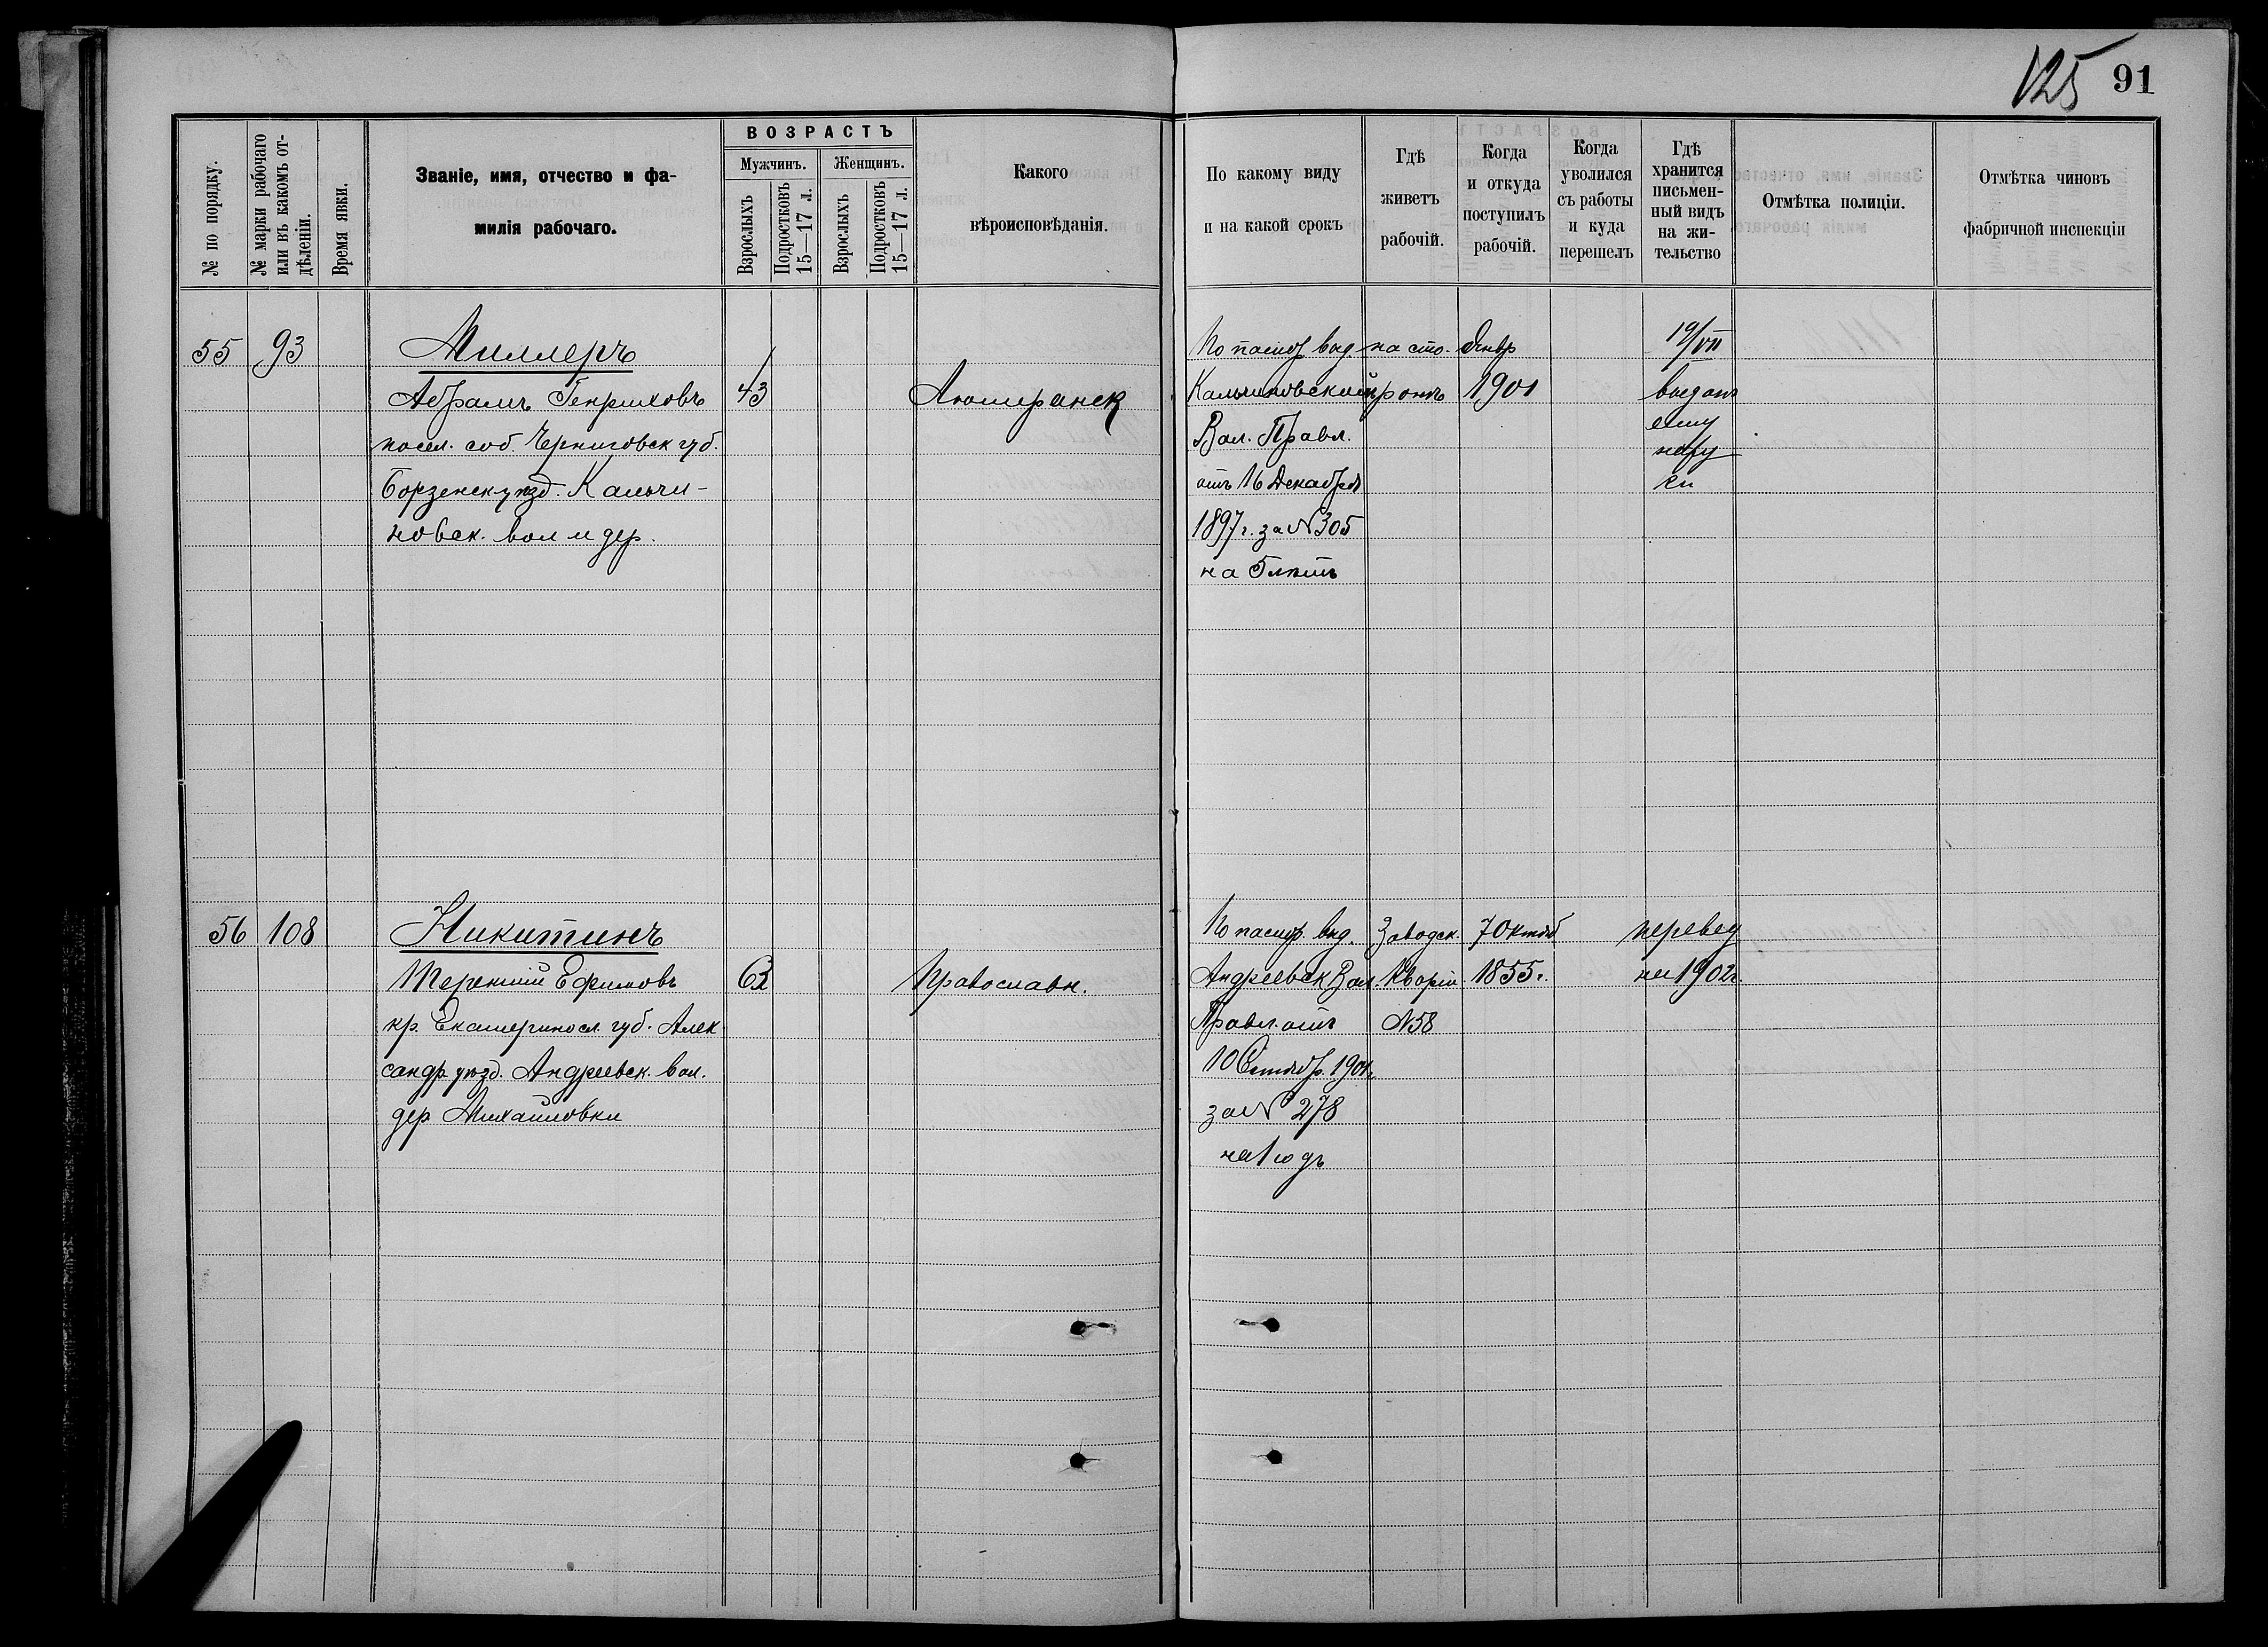 125 91
ВОЗРАСТЪ
№ по порядку.
№ марки рабочаго или въ какомъ от-
дѣленіи.
Время явки.
Званіе, имя, отчество и фа-
милія рабочаго.
Мужчинъ.
Женщинъ.
Взрослыхъ
Подростковъ
15—17 л.
Взрослыхъ
Подростковъ
15—17 л.
Какого
вѣроисповѣданія.
По какому виду
и на какой срокъ
Гдѣ
живетъ
рабочій.
Когда
и откуда
поступилъ
рабочій.
Когда
уволился
съ работы
и куда
перешелъ
Гдѣ
хранится
письмен-
ный видъ
на жи-
тельство
Отмѣтка полиціи.
Отмѣтка чиновъ
фабричной инспекціи
55 93
Миллеръ
Абрамъ Генриховъ
посел. соб. Черниговск губ.
Борзенск уѣзд. Кальчи-
новск. вол и дер.
43
Лютеранск
По паспор выд
Кальчиновский
Вол. Правл.
отъ 16 Декабря
1897 г. за № 305
на 5 лѣтъ
на сто-
ронѣ
Янвр
1901
19/VII
выданъ
ему
на ру
ки
56 108
Никитинъ
Терентій Ефимовъ
кр. Екатериносл. губ. Алек
сандр уѣзд. Андреевск. вол.
дер Михайловки
63
Православн.
По паспор. выд.
Андреевск Вол
Правл. отъ
10 Октябр. 1901 г.
за № 278
на 1 годъ
Заводск.
Квартир.
№ 58
7 Октяб
1855 г.
перевед
на 1902 г.